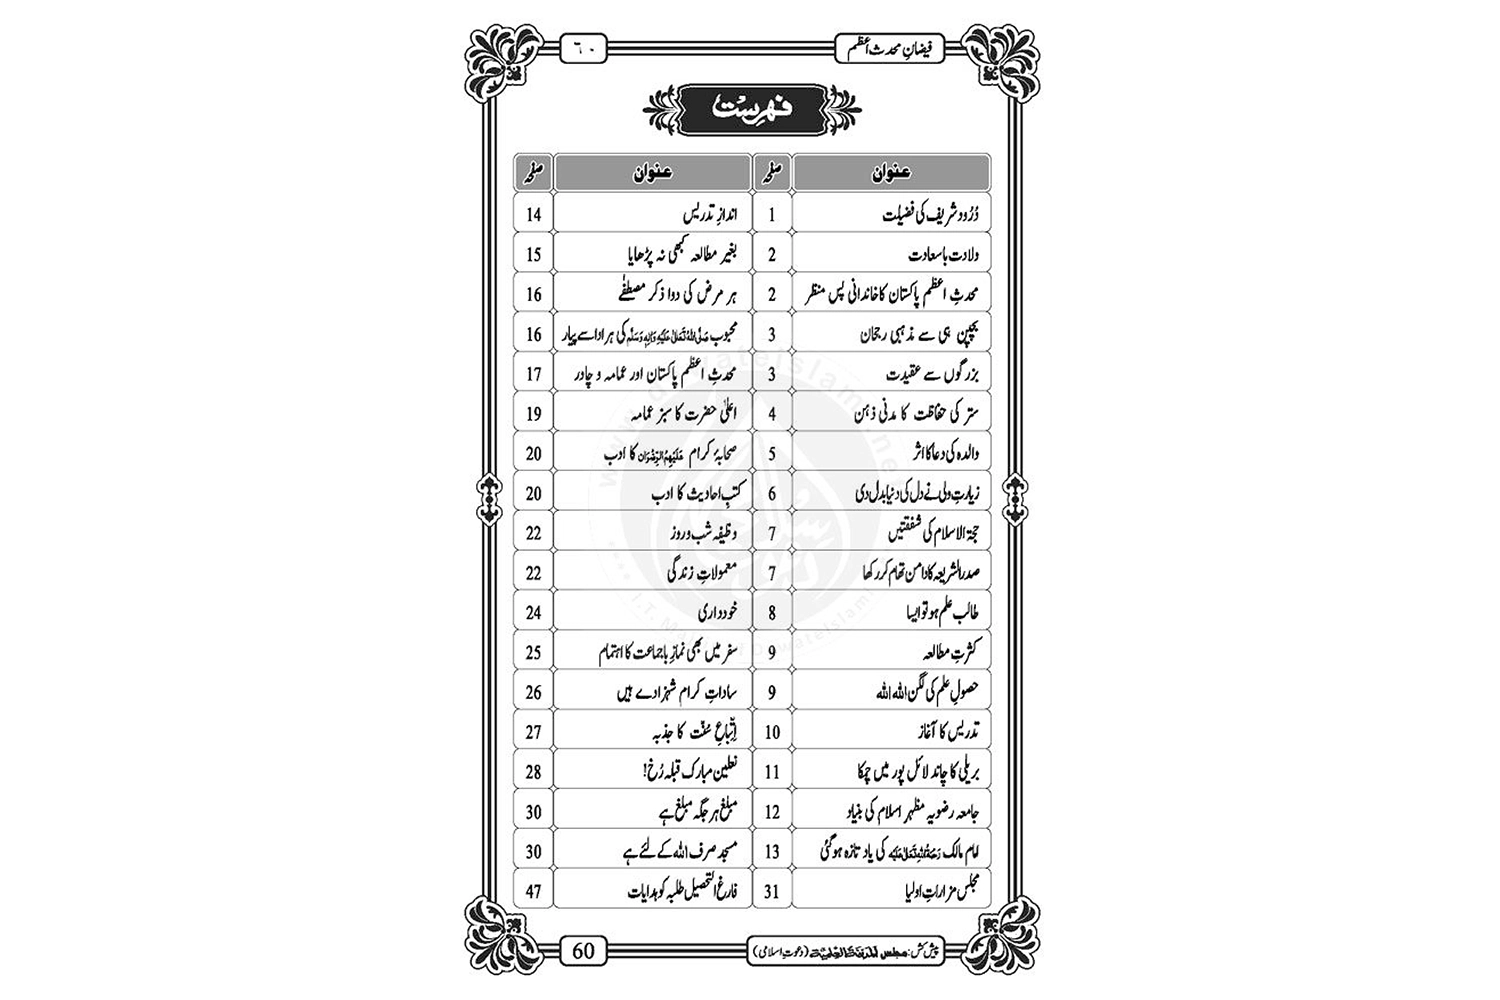 فیضانِ محدث اعظم ٦٠
فہرست
عنوان صفحہ عنوان صفحہ
دُرُود شریف کی فضیلت 1 اندازِ تدریس 14
ولادت باسعادت 2 بغیر مطالعہ کبھی نہ پڑھایا 15
محدثِ اعظم پاکستان کا خاندانی پس منظر 2 ہر مرض کی دوا ذکر مصطفٰے 16
بچپن ہی سے مذہبی رجحان 3 محبوب صَلَّی اللہُ تَعَالٰی عَلَیْہِ وَاٰلِہٖ وَسَلَّم کی ہر ادا سے پیار 16
بزرگوں سے عقیدت 3 محدثِ اعظم پاکستان اور عمامہ و چادر 17
ستر کی حفاظت کا مدنی ذہن 4 اعلیٰ حضرت کا سبز عمامہ 19
والدہ کی دعا کا اثر 5 صحابۂ کرام عَلَیْہِمُ الرِّضْوَان کا ادب 20
زیارتِ ولی نے دل کی دنیا بدل دی 6 کتبِ احادیث کا ادب 20
حجۃ الاسلام کی شفقتیں 7 وظیفہ شب و روز 22
صدر الشریعہ کا دامن تھام کر رکھا 7 معمولاتِ زندگی 22
طالب علم ہو تو ایسا 8 خودداری 24
کثرتِ مطالعہ 9 سفر میں بھی نمازِ باجماعت کا اہتمام 25
حصولِ علم کی لگن اللہ اللہ 9 ساداتِ کرام شہزادے ہیں 26
تدریس کا آغاز 10 اِتِّباعِ سُنّت کا جذبہ 27
بریلی کا چاند لائل پور میں چمکا 11 نعلین مبارک قبلہ رُخ! 28
جامعہ رضویہ مظہرِ اسلام کی بنیاد 12 مبلغ ہر جگہ مبلغ ہے 30
امام مالک رَحْمَۃُ اللہِ تَعَالٰی عَلَیْہ کی یاد تازہ ہوگئی 13 مسجد صرف اللہ کے لئے ہے 30
مجلس مزاراتِ اولیا 31 فارغ التحصیل طلبہ کو ہدایات 47
پیش کش: مجلس المدینۃ العلمیۃ (دعوتِ اسلامی) 60